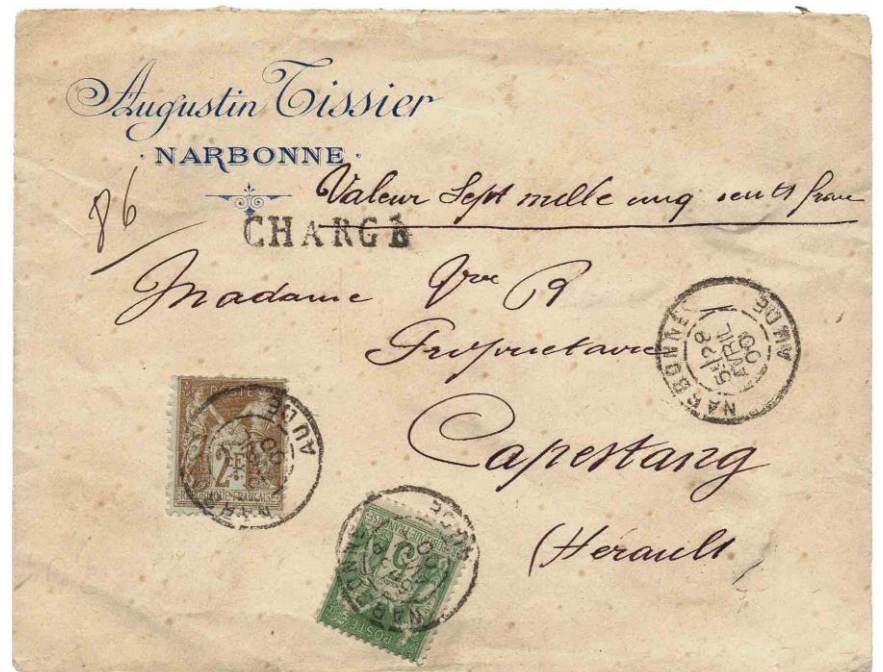 Augustin Tissier
· NARBONNE ·
86
Valeur Sept mille cinq cents francs
CHARGÉ
Madame Vve R
Propriétaire
Capestang
(Hérault)
NARBONNE
5E 28
AVRIL
00
AUDE
POSTES
2F
REPUBLIQUE FRANCAISE
AUDE
00
NARBONNE
AUDE
00
5